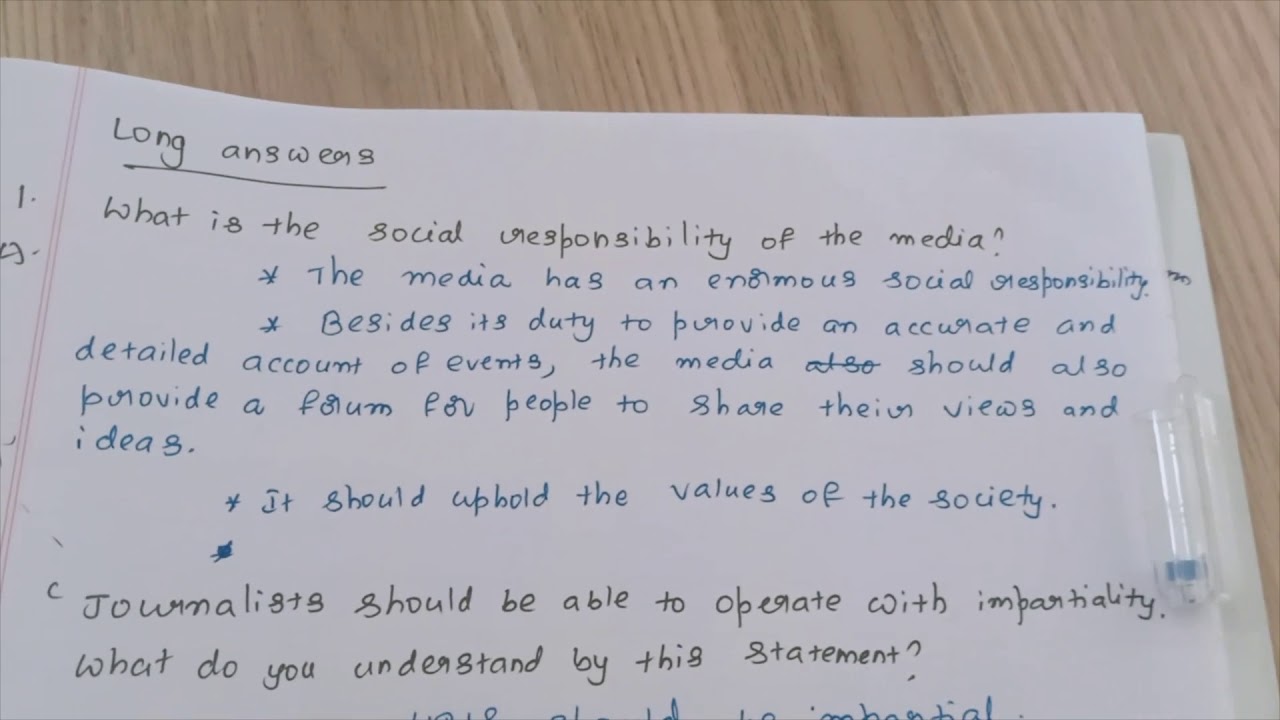 Long answers
1.
What is the social responsibility of the media?
* The media has an enormous social responsibility.
* Besides its duty to provide an accurate and
detailed account of events, the media also should also
provide a forum for people to share their views and
ideas.
* It should uphold the values of the society.
*
c Journalists should be able to operate with impartiality.
What do you understand by this statement?
should be impartial.